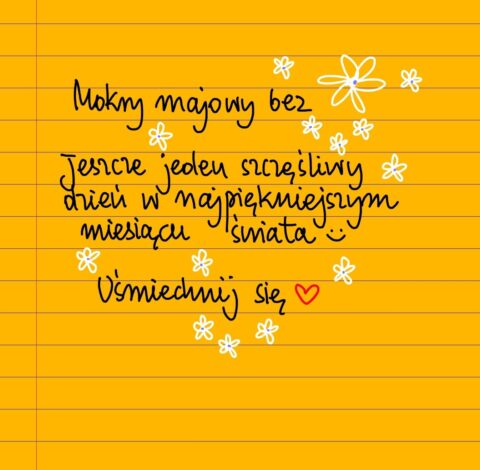 Mokry majowy bez
Jeszcze jeden szczęśliwy
dzień w najpiękniejszym
miesiącu świata
Uśmiechnij się